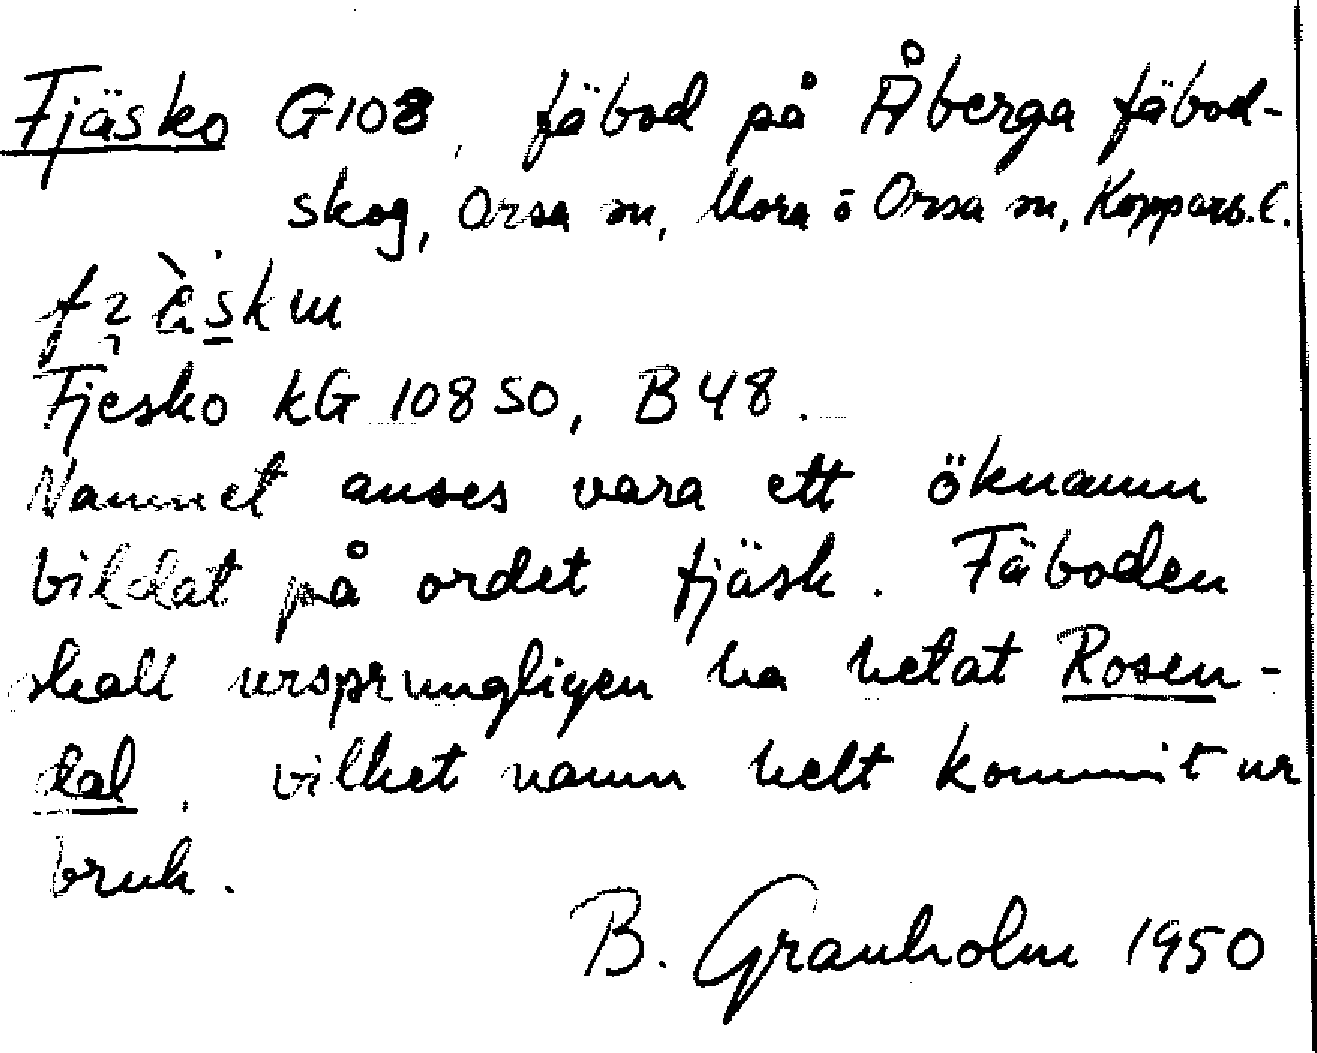 Fjäsko G108, fäbod på Åberga fäbod-
skog, Orsa sn, Mora o Orsa sn, Kopparb. l.
Fjesko kG 108 SO, B48.
Namnet anses vara ett öknamn
bildat på ordet fjäsk. Fäboden
skall ursprungligen ha hetat Rosen-
dal, vilket namn helt kommit ur
bruk.
B. Granholm 1950